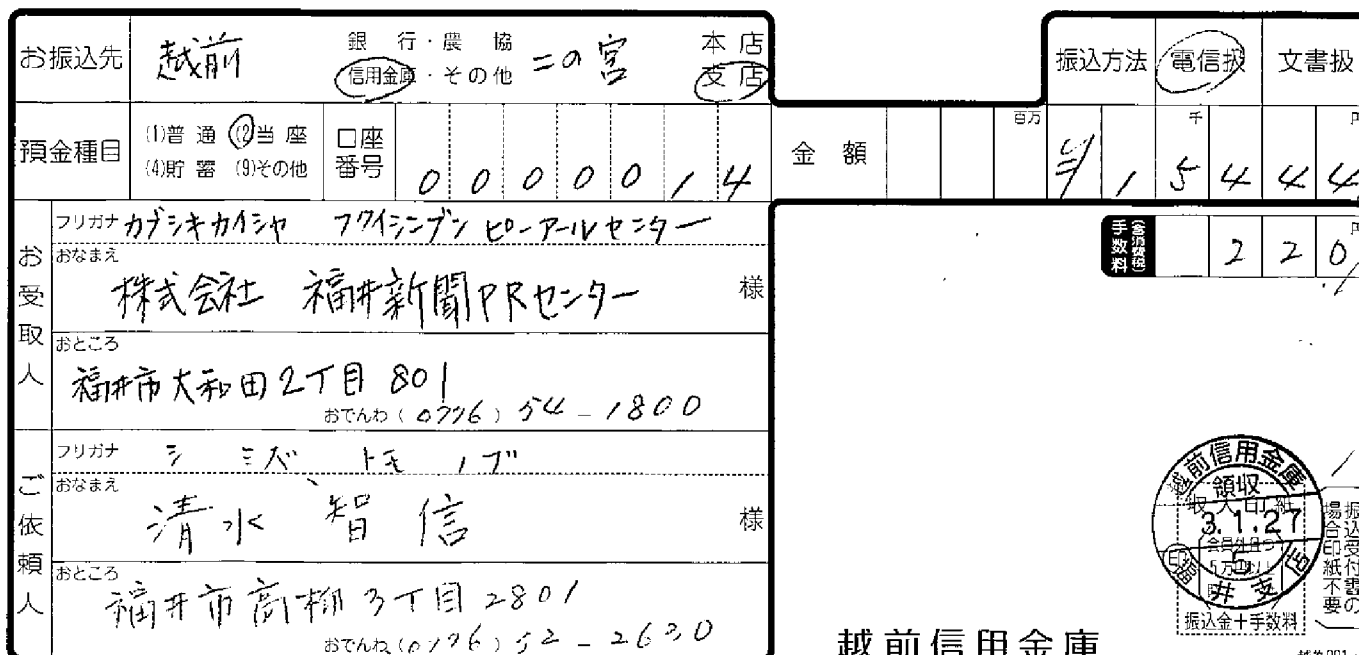 お振込先 越前 銀行・農協 信用金庫・その他 二の宮 本店 支店 振込方法 電信扱 文書扱
預金種目 (1)普通 (2)当座 (4)貯蓄 (9)その他 口座番号 0000014 金額 百万 千 円 ¥15444
フリガナ カブシキカイシャ フクイシンブン ピーアールセンター
手数料 (含消費税) 220 円
お受取人
おなまえ 株式会社 福井新聞PRセンター 様
おところ 福井市大和田2丁目801
おでんわ(0776)54-1800
ご依頼人
フリガナ シミズ トモノブ
おなまえ 清水 智信 様
おところ 福井市高柳3丁目2801
おでんわ(0776)52-2630
越前信用金庫
領収
収入印紙
3.1.27
福井支店
振込金+手数料
振込受付書の場合印紙不要
越前信用金庫